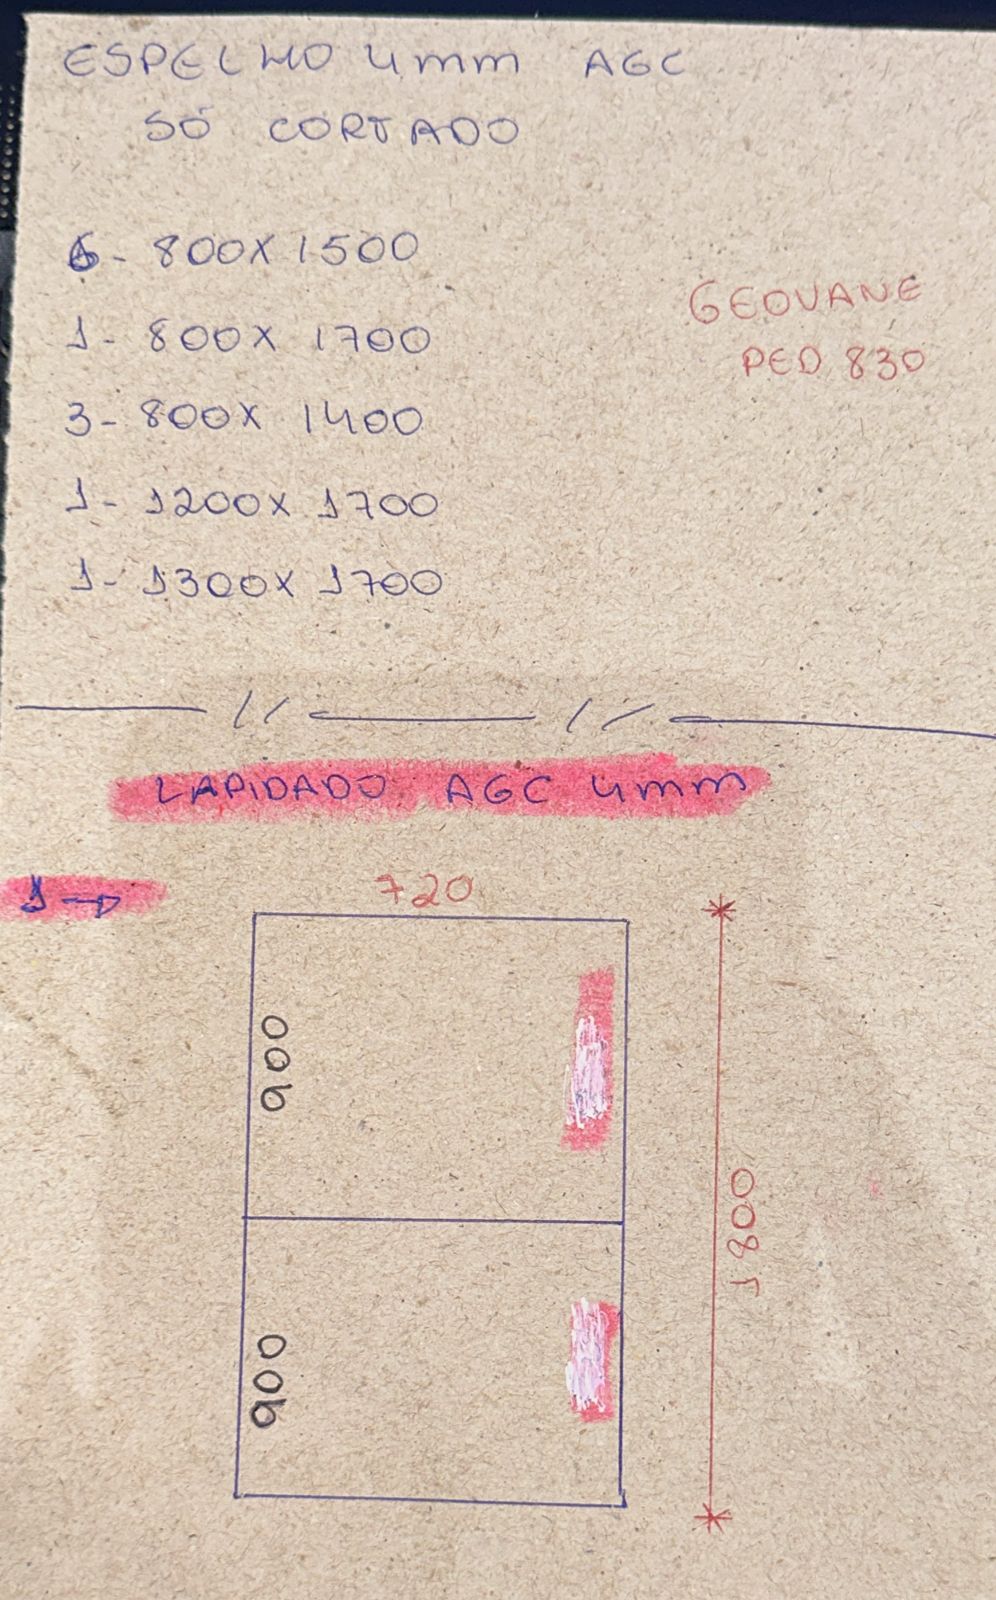 ESPELHO 4mm AGC
SÓ CORTADO
6- 800X1500
1- 800X 1700
3- 800X 1400
1- 1200X 1700
1- 1300X 1700
GEOVANE
PED 830
LAPIDADO AGC 4mm
1→
720
900
900
1800